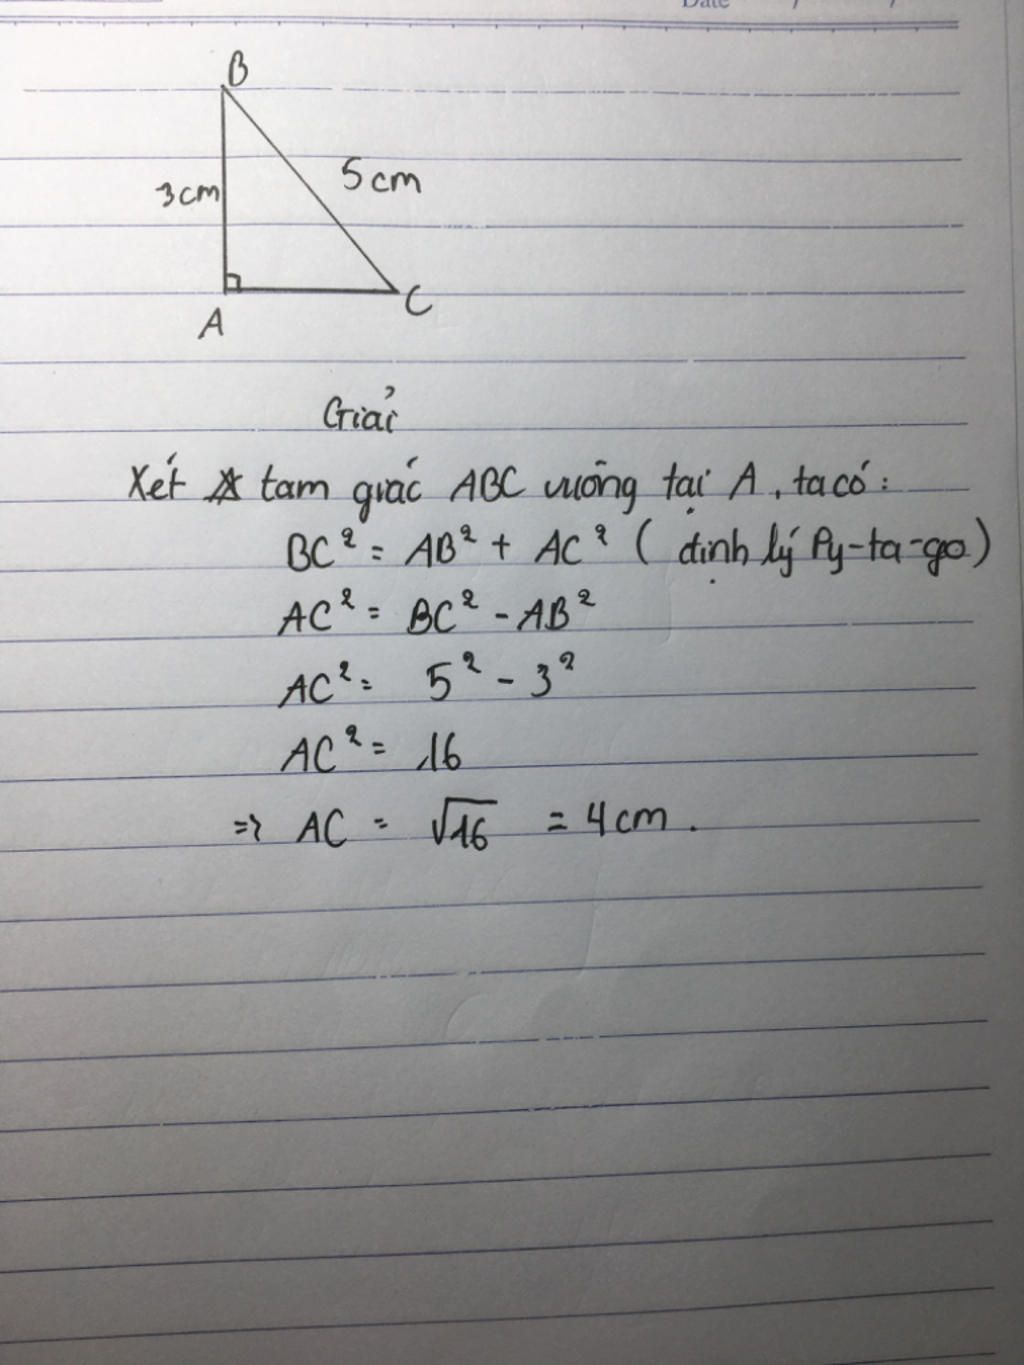 Date / /
B
3cm
5cm
A
C
Giải
Xét tam giác ABC vuông tại A, ta có:
BC² = AB² + AC² (định lý Py-ta-go)
AC² = BC² - AB²
AC² = 5² - 3²
AC² = 16
=> AC = √16 = 4cm.